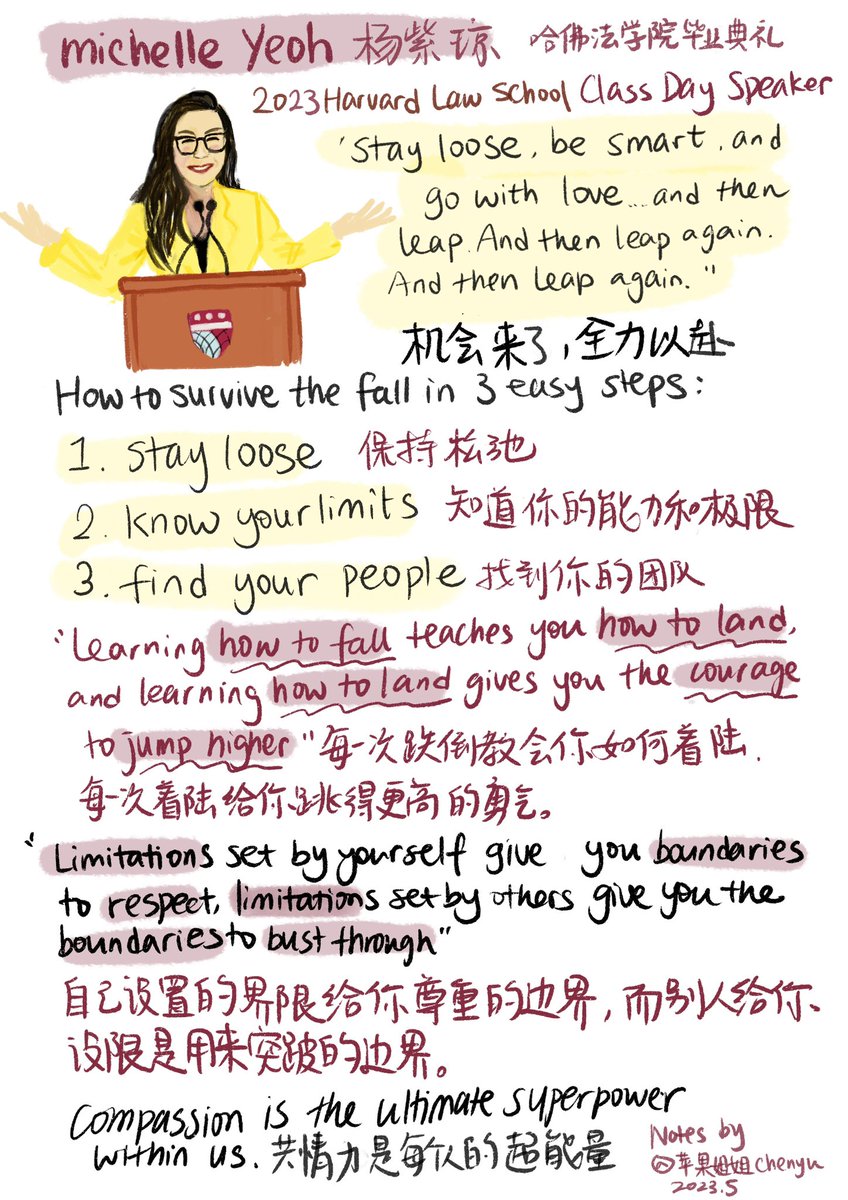 michelle Yeoh 杨紫琼 哈佛法学院毕业典礼
2023 Harvard Law School Class Day Speaker
"Stay loose, be smart, and
go with love... and then
leap. And then leap again.
And then leap again."
机会来了,全力以赴
How to survive the fall in 3 easy steps:
1. stay loose 保持松弛
2. know your limits 知道你的能力和极限
3. find your people 找到你的团队
"Learning how to fall teaches you how to land,
and learning how to land gives you the courage
to jump higher" 每一次跌倒教会你如何着陆.
每一次着陆给你跳得更高的勇气。
"Limitations set by yourself give you boundaries
to respect, limitations set by others give you the
boundaries to bust through"
自己设置的界限给你尊重的边界,而别人给你
设限是用来突破的边界。
Compassion is the ultimate superpower
within us. 共情力是每个人的超能量
Notes by
@苹果姐姐chenyu
2023.5